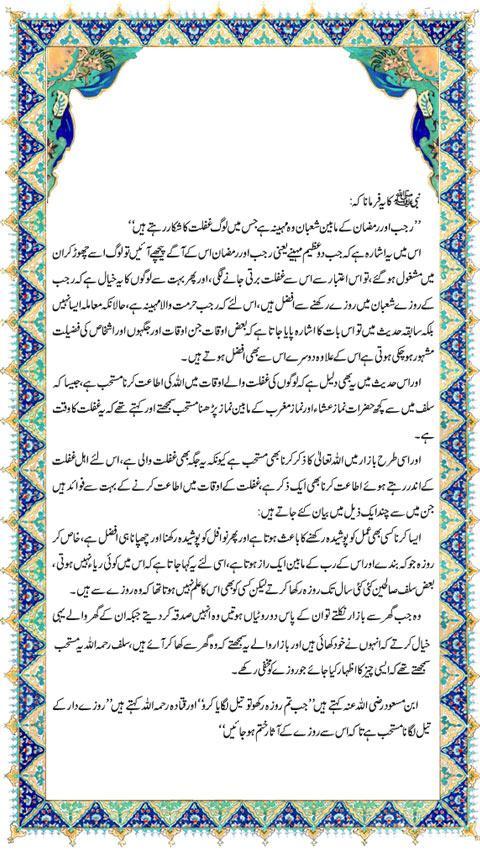 نبی ﷺ کا یہ فرمانا کہ:
’’رجب اور رمضان کے مابین شعبان وہ مہینہ ہے جس میں لوگ غفلت کا شکار رہتے ہیں‘‘
اس میں یہ اشارہ ہے کہ جب دو عظیم مہینے یعنی رجب اور رمضان اس کے آگے پیچھے آئیں تو لوگ اسے چھوڑ کر ان
میں مشغول ہو گئے، تو اس اعتبار سے اس سے غفلت برتی جانے لگی، اور پھر بہت سے لوگوں کا یہ خیال ہے کہ رجب
کے روزے شعبان میں روزے رکھنے سے افضل ہیں، اس لئے کہ رجب حرمت والا مہینہ ہے، حالانکہ معاملہ ایسا نہیں
بلکہ سابقہ حدیث میں تو اس بات کا اشارہ پایا جاتا ہے کہ بعض اوقات جن اوقات اور جگہوں اور اشخاص کی فضیلت
مشہور ہو چکی ہوتی ہے اس کے علاوہ دوسرے اس سے بھی افضل ہوتے ہیں۔
اور اس حدیث میں یہ بھی دلیل ہے کہ لوگوں کی غفلت والے اوقات میں اللہ کی اطاعت کرنا مستحب ہے، جیسا کہ
سلف میں سے کچھ حضرات نماز عشاء اور نماز مغرب کے مابین نماز پڑھنا مستحب سمجھتے اور کہتے تھے کہ یہ غفلت کا وقت
ہے۔
اور اسی طرح بازار میں اللہ تعالیٰ کا ذکر کرنا بھی مستحب ہے کیونکہ یہ جگہ بھی غفلت والی ہے، اس لئے اہل غفلت
کے اندر رہتے ہوئے اطاعت کرنا بھی ایک ذکر ہے، غفلت کے اوقات میں اطاعت کرنے کے بہت سے فوائد ہیں
جن میں سے چند ایک ذیل میں بیان کئے جاتے ہیں:
ایسا کرنا کسی بھی عمل کو پوشیدہ رکھنے کا باعث ہوتا ہے اور پھر نوافل کو پوشیدہ رکھنا اور چھپانا ہی افضل ہے، خاص کر
روزہ جو کہ بندے اور اس کے رب کے مابین ایک راز ہوتا ہے، اسی لئے یہ کہا جاتا ہے کہ اس میں کوئی ریا نہیں ہوتی،
بعض سلف صالحین کئی کئی سال تک روزہ رکھا کرتے لیکن کسی کو بھی اس کا علم نہیں ہوتا تھا کہ وہ روزے سے ہیں۔
وہ جب گھر سے بازار نکلتے تو ان کے پاس دو روٹیاں ہوتیں وہ انہیں صدقہ کر دیتے جبکہ ان کے گھر والے یہی
خیال کرتے کہ انہوں نے خود کھائی ہیں اور بازار والے یہ سمجھتے کہ وہ گھر سے کھا کر آئے ہیں، سلف رحمہ اللہ یہ مستحب
سمجھتے تھے کہ ایسی چیز کا اظہار کیا جائے جو روزے کو مخفی رکھے۔
ابن مسعود رضی اللہ عنہ کہتے ہیں ’’جب تم روزہ رکھو تو تیل لگایا کرو‘‘ اور قتادہ رحمہ اللہ کہتے ہیں ’’روزے دار کے
تیل لگانا مستحب ہے تا کہ اس سے روزے کے آثار ختم ہو جائیں‘‘